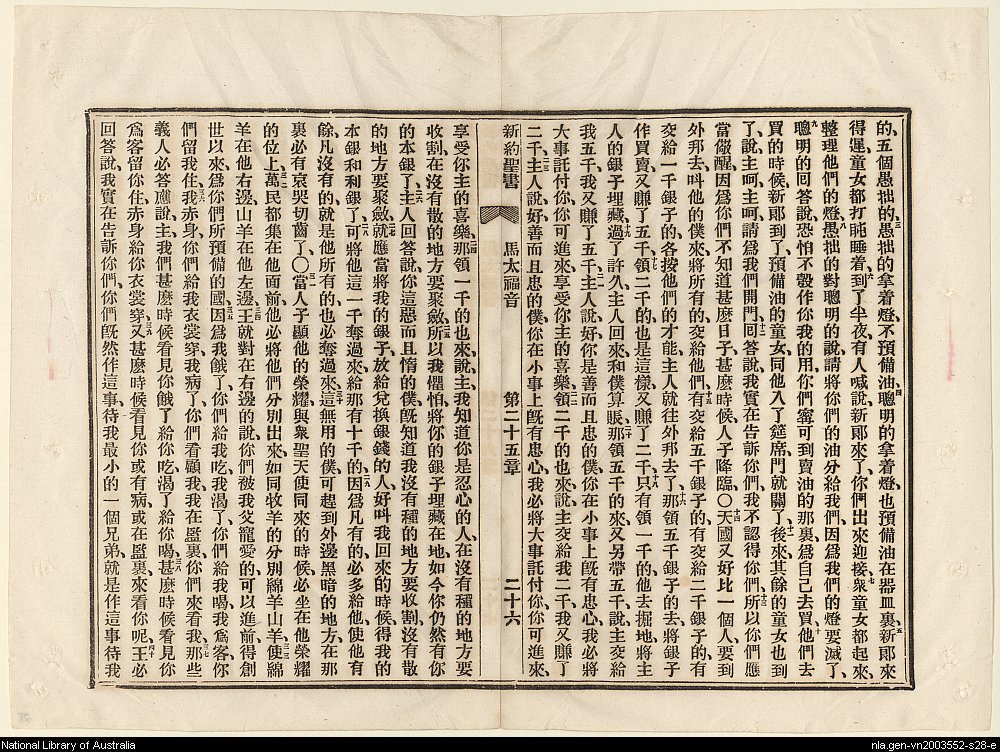 的、五個愚拙的愚拙的拿着燈、不預備油、聰明的拿着燈、也預備油在器皿裏、新郎來
得遲、童女都打盹睡着、到了半夜、有人喊說、新郎來了、你們出來迎接、衆童女都起來、
整理他們的燈、愚拙的對聰明的說、請將你們的油分給我們、因爲我們的燈要滅了、
聰明的回答說、恐怕不彀作你我的用、你們寧可到賣油的那裏、爲自己去買、他們去
買的時候、新郎到了、預備油的童女、同他入了筵席、門就關了、後來其餘的童女也到
了、說、主呵、主呵、請爲我們開門、回答說、我實在告訴你們、我不認得你們、所以你們應
當儆醒、因爲你們不知道甚麼日子、甚麼時候、人子降臨○天國又好比一個人、要到
外邦去、叫他的僕來、將所有的交給他們、有交給五千銀子的、有交給二千銀子的、有
交給一千銀子的、各按他們的才能、主人就往外邦去了、那領五千銀子的去、將銀子
作買賣、又賺了五千、領二千的也是這樣、又賺了二千、只有領一千的、他去掘地、將主
人的銀子埋藏、過了許久、主人回來、和僕算賬、那領五千的來、又另帶五千、說、主交給
我五千、我又賺了五千、主人說、好、你是善而且忠的僕、你在小事上旣有忠心、我必將
大事託付你、你可進來享受你主的喜樂、領二千的也來說、主交給我二千、我又賺了
二千、主人說、好、善而且忠的僕、你在小事上旣有忠心、我必將大事託付你、你可進來、
新約聖書 馬太福音 第二十五章 二十六
享受你主的喜樂、那領一千的也來說、主我知道你是忍心的人、在沒有種的地方要
收割、在沒有散的地方要聚斂、所以我懼怕、將你的銀子埋藏在地、如今你仍然有你
的本銀了、主人回答說、你這惡而且惰的僕、旣知道我沒有種的地方要收割、沒有散
的地方要聚斂、就應當將我的銀子放給兌換銀錢的人、好叫我回來的時候、得我的
本銀和利銀了、可將他這一千奪過來、給那有十千的、因爲凡有的、必多給他、使他有
餘、凡沒有的、就是他所有的、也必奪過來、這無用的僕、可趕到外邊黑暗的地方、在那
裏必有哀哭切齒了○當人子顯他的榮耀、與衆聖天使同來的時候、必坐在他榮耀
的位上、萬民都集在他面前、他必將他們分別出來、如同牧羊的分別綿羊山羊、使綿
羊在他右邊、山羊在他左邊、王就對在右邊的說、你們被我父寵愛的、可以進前、得創
世以來、爲你們所預備的國、因爲我餓了、你們給我吃、我渴了、你們給我喝、我爲客、你
們留我住、我赤身、你們給我衣裳穿、我病了、你們看顧我、我在監裏、你們來看我、那些
義人必答應說、主我們甚麼時候看見你餓了給你吃、渴了給你喝、甚麼時候看見你
爲客留你住、赤身給你衣裳穿、又甚麼時候看見你或有病、或在監裏、來看你呢、王必
回答說、我實在告訴你們、你們旣然作這事待我最小的一個兄弟、就是作這事待我
National Library of Australia
nla.gen-vn2003552-s28-e